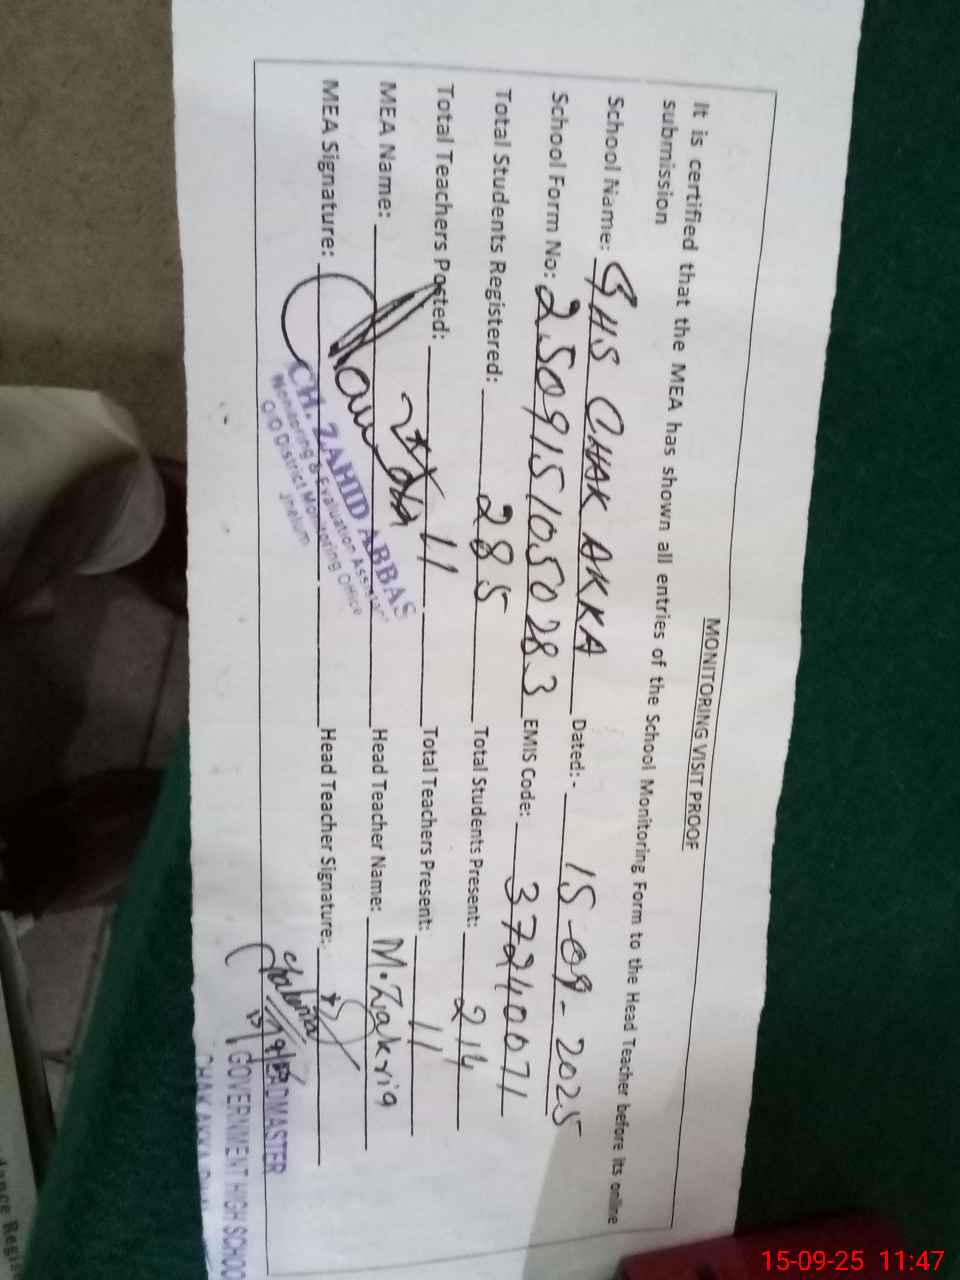 MONITORING VISIT PROOF
It is certified that the MEA has shown all entries of the School Monitoring Form to the Head Teacher before its online
submission
School Name: GHS CHAK AKKA Dated:- 15-09-2025
School Form No: 2509151050283 EMIS Code: 37240071
Total Students Registered: 285 Total Students Present: 214
Total Teachers Posted: 11 Total Teachers Present: 11
MEA Name: Head Teacher Name: M. Zakria
MEA Signature: Head Teacher Signature:
CH. ZAHID ABBAS
Monitoring & Evaluation Assistant
O/O District Monitoring Office
Jhelum
HEADMASTER
GOVERNMENT HIGH SCHOO
CHAK AKKA
15-09-25 11:47